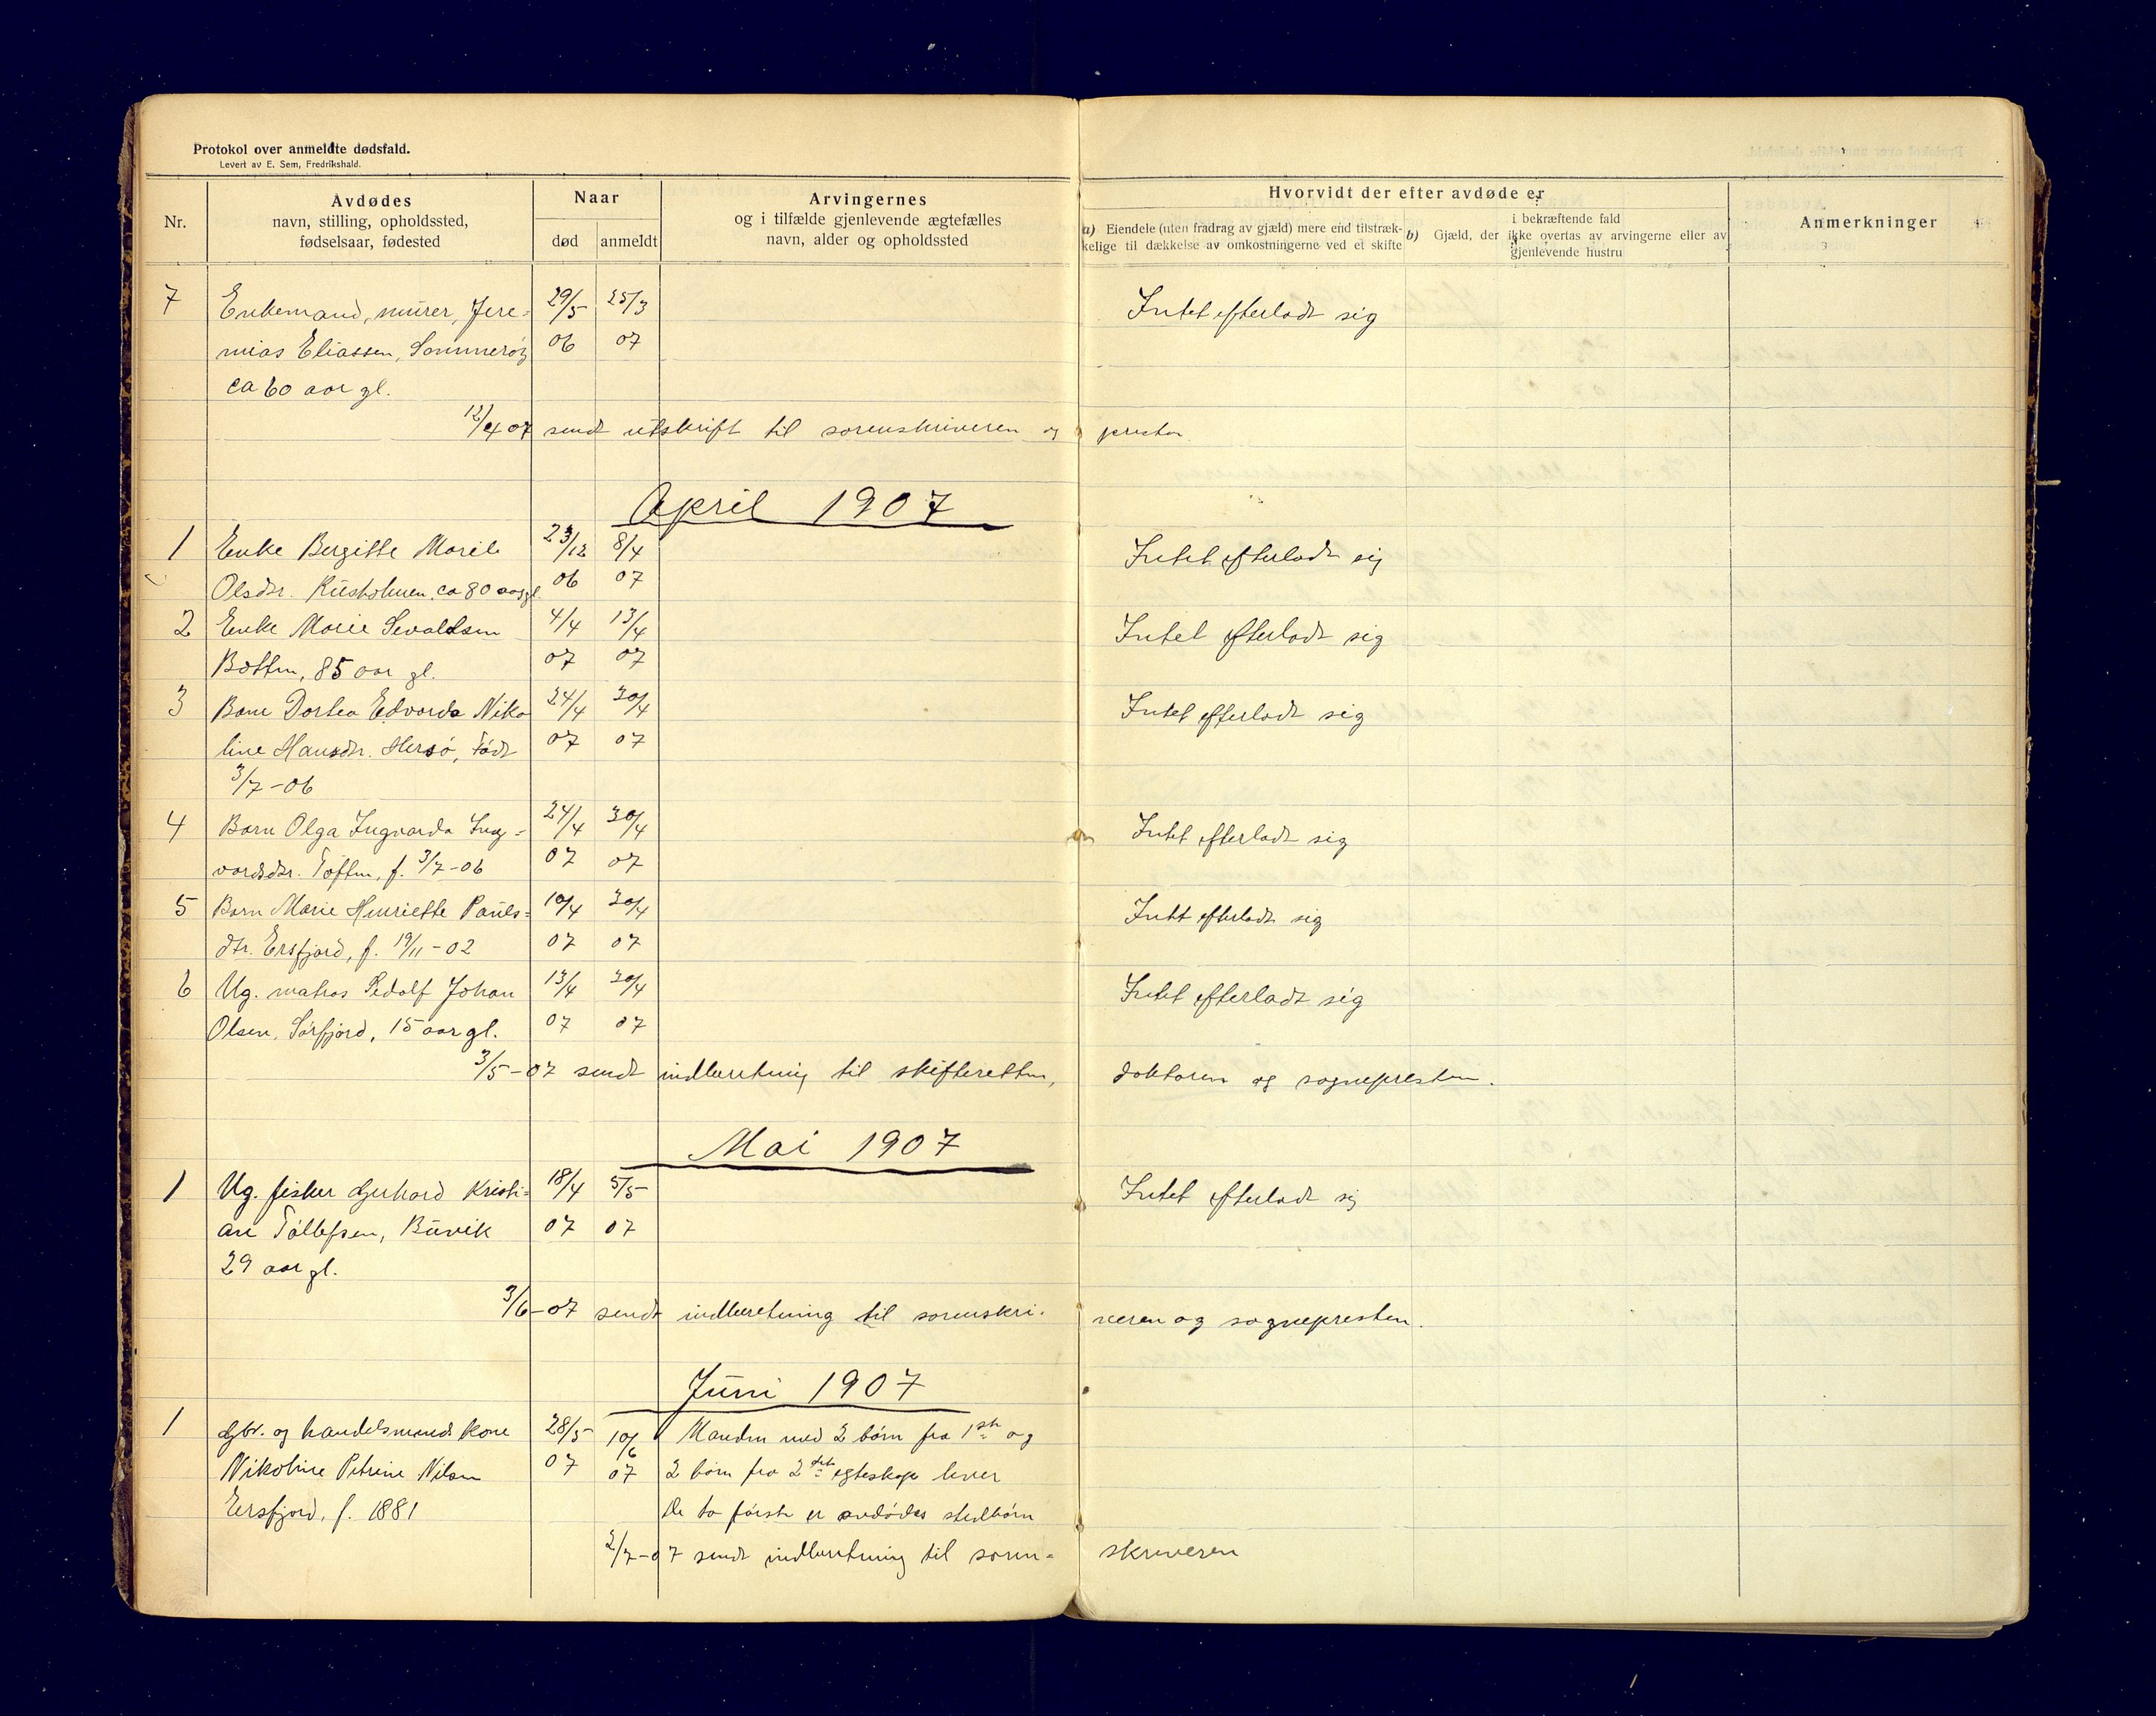 Protokol over anmeldte dødsfald.
Levert av E. Sem, Fredrikshald.
Nr.
Avdødes
navn, stilling, opholdssted,
fødselsaar, fødested
Naar
død
anmeldt
Arvingernes
og i tilfælde gjenlevende ægtefælles
navn, alder og opholdssted
Hvorvidt der efter avdøde er
a) Eiendele (uten fradrag av gjæld) mere end tilstræk-
kelige til dækkelse av omkostningerne ved et skifte
i bekræftende fald
b) Gjæld, der ikke overtas av arvingerne eller av
gjenlevende hustru
Anmerkninger
7 Enkemand, murer, Jere- 29/5 25/3 Intet efterladt sig
mias Eliassen, Sommerøy 06 07
ca 60 aar gl.
12/4 07 sendt utskrift til sorenskriveren og presten
April 1907
1 Enke Bergitte Marie 23/12 8/4 Intet efterladt sig
Olsdtr. Kusholmen, ca 80 aar gl. 06 07
2 Enke Marie Sevaldsen 4/4 13/4 Intet efterladt sig
Botten, 85 aar gl. 07 07
3 Barn Dortea Edvarda Niko 24/4 30/4 Intet efterladt sig
line Hansdtr. Hersø, født 07 07
3/7-06
4 Barn Olga Ingvarda Ing- 24/4 30/4 Intet efterladt sig
vardsdtr. Toften, f. 3/7-06 07 07
5 Barn Marie Henriette Pauls- 10/4 30/4 Intet efterladt sig
dtr. Ersfjord, f. 19/11-02 07 07
6 Ug. matros Pedolf Johan 13/4 30/4 Intet efterladt sig
Olsen, Sørfjord, 15 aar gl. 07 07
3/5-07 sendt indberetning til skifteretten, doktoren og sognepresten.
Mai 1907
1 Ug. fisker Gerhard Kristi- 18/4 5/5 Intet efterladt sig
an Tollefsen, Buvik 07 07
29 aar gl.
3/6-07 sendt indberetning til sorenskri- veren og sognepresten.
Juni 1907
1 Gbr. og handelsmands kone 28/5 10/6 Manden med 2 børn fra 1ste og
Nikoline Petrine Nilsen 07 07 2 børn fra 2det egteskap lever
Ersfjord, f. 1881 De to første er avdødes stedbørn
2/7-07 sendt indberetning til soren- skriveren